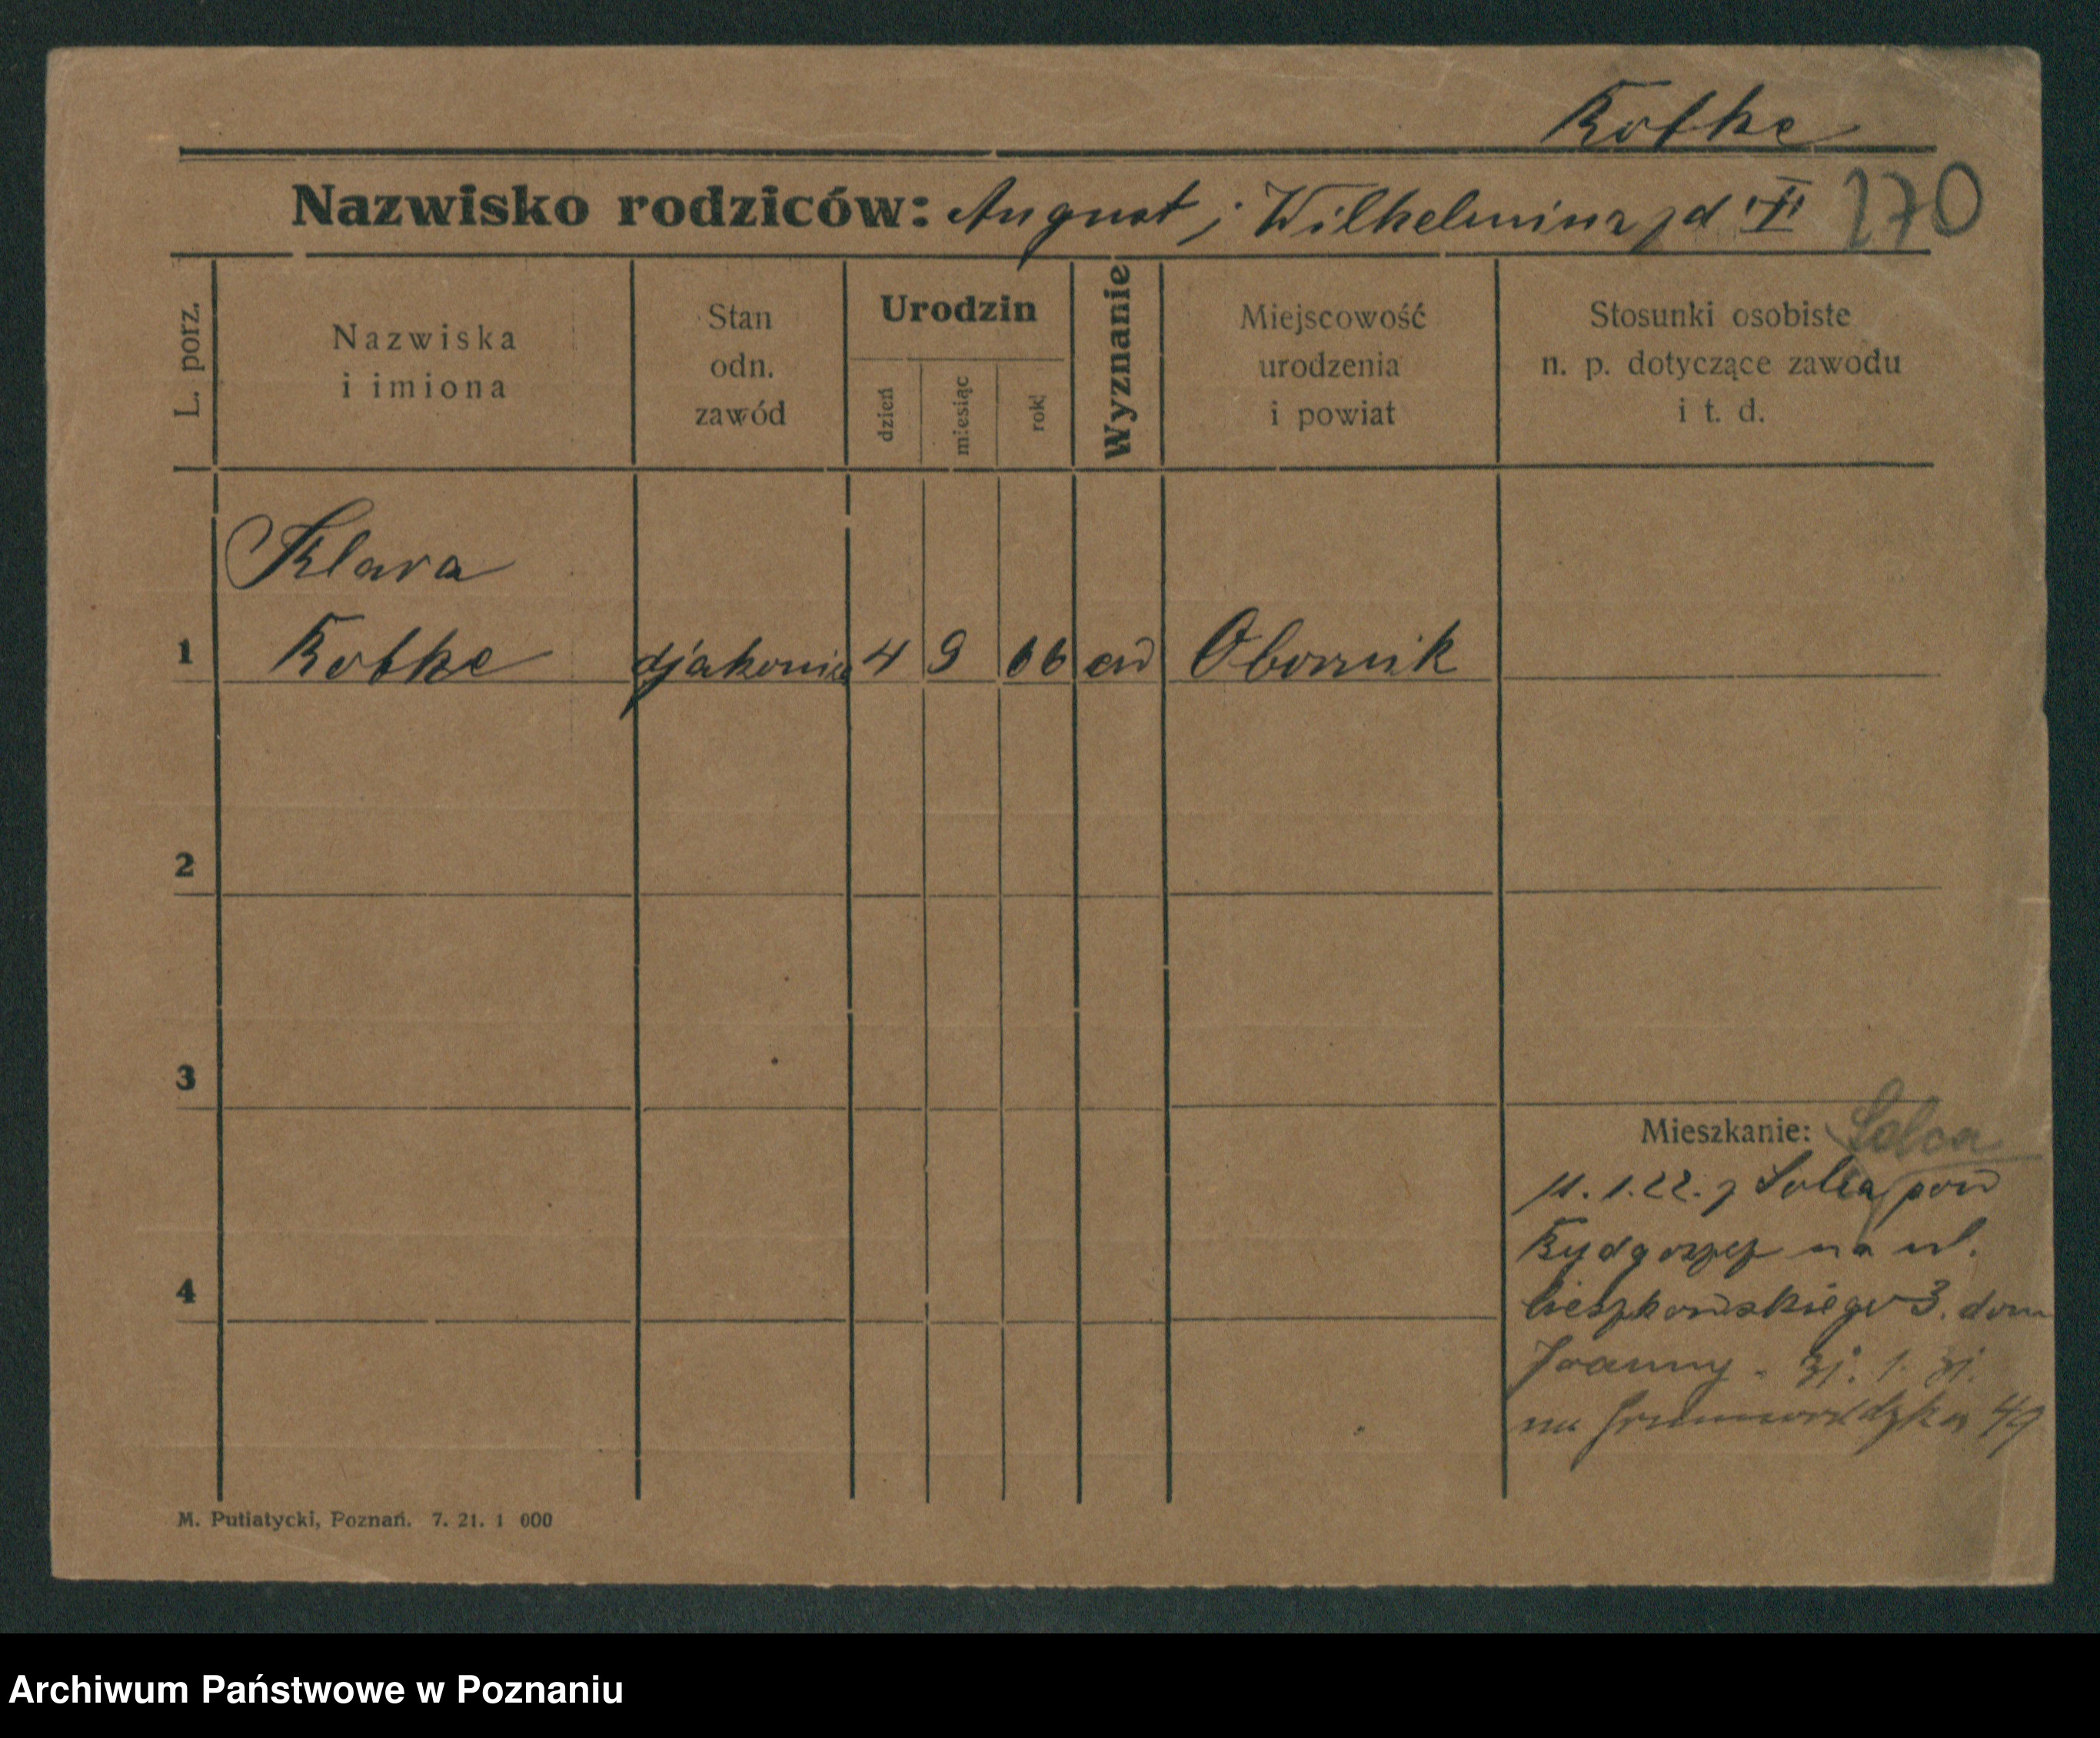 Kotke
Nazwisko rodziców: August i Wilhelmina
170
L. porz.
Nazwiska i imiona
Stan odn. zawód
Urodzin
dzień
miesiąc
rok
Wyznanie
Miejscowość urodzenia i powiat
Stosunki osobiste n. p. dotyczące zawodu i t. d.
Klara
1 Kotke djakonis 4 9 66 ew Obornik
2
3
Mieszkanie: Solca
11. 1. 22. z Solca pow
Bydgoszcz na ul.
Cieszkowskiego 3. dom
4
Joanny - 31. 1. 31.
na Grunwaldzka 49
M. Putiatycki, Poznań. 7. 21. 1 000
Archiwum Państwowe w Poznaniu